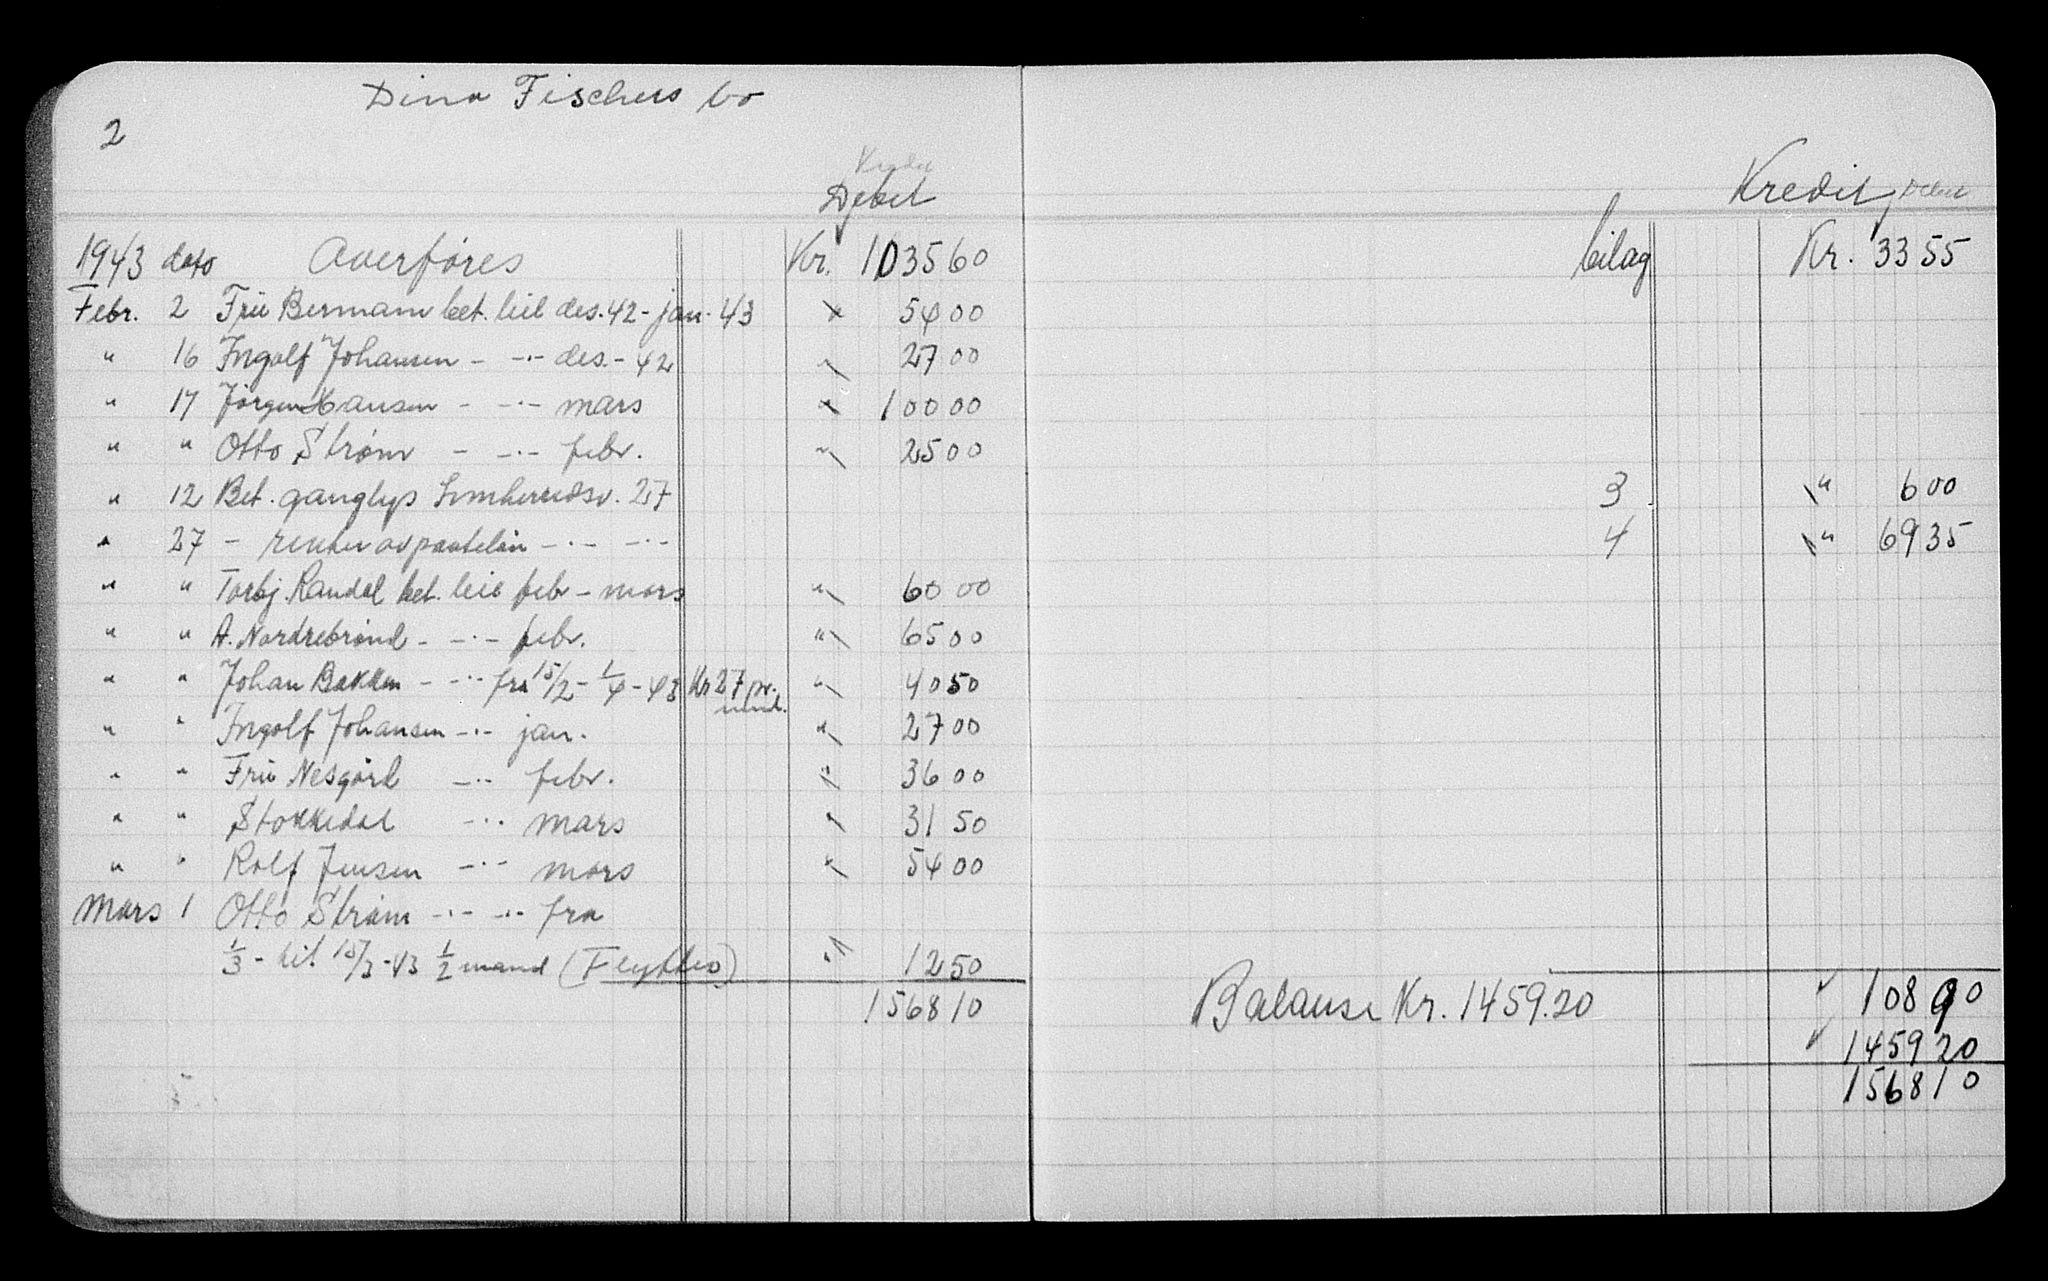 Dina Fischers bo
2
Kredit
Debet
Kredit, Debet
1943 dato Overføres Kr. 1035 60 bilag Kr. 33 55
Febr. 2 Fru Bermann bet. leie des. 42 - jan. 43 " 54 00
" 16 Ingolf Johansen - -"- des. - 42 " 27 00
" 17 Jörgen Hansen - -"- mars " 100 00
" " Otto Strøm - -"- febr. " 25 00
" 12 Bet. ganglys 27 3 " 6 00
" 27 - renter av pantelån -"- -"- 4 " 69 35
" " Torbj. Randal bet. leie febr - mars " 60 00
" " A. Nordrebrønd - -"- febr. " 65 00
" " Johan Bakken - -"- fra 15/2 - 1/4 - 43 Kr 27 pr. mnd. " 40 50
" " Ingolf Johansen -"- jan. " 27 00
" " Fru Nesgård -"- febr. " 36 00
" " Stokkedal -"- mars " 31 50
" " Rolf Jensen -"- mars " 54 00
Mars 1 Otto Strøm -"- -"- fra
1/3 - til 15/3 - 43 1/2 mand (Flyttes) " 12 50
1568 10 Balanse Kr. 1459.20 108 90
1459 20
1568 10